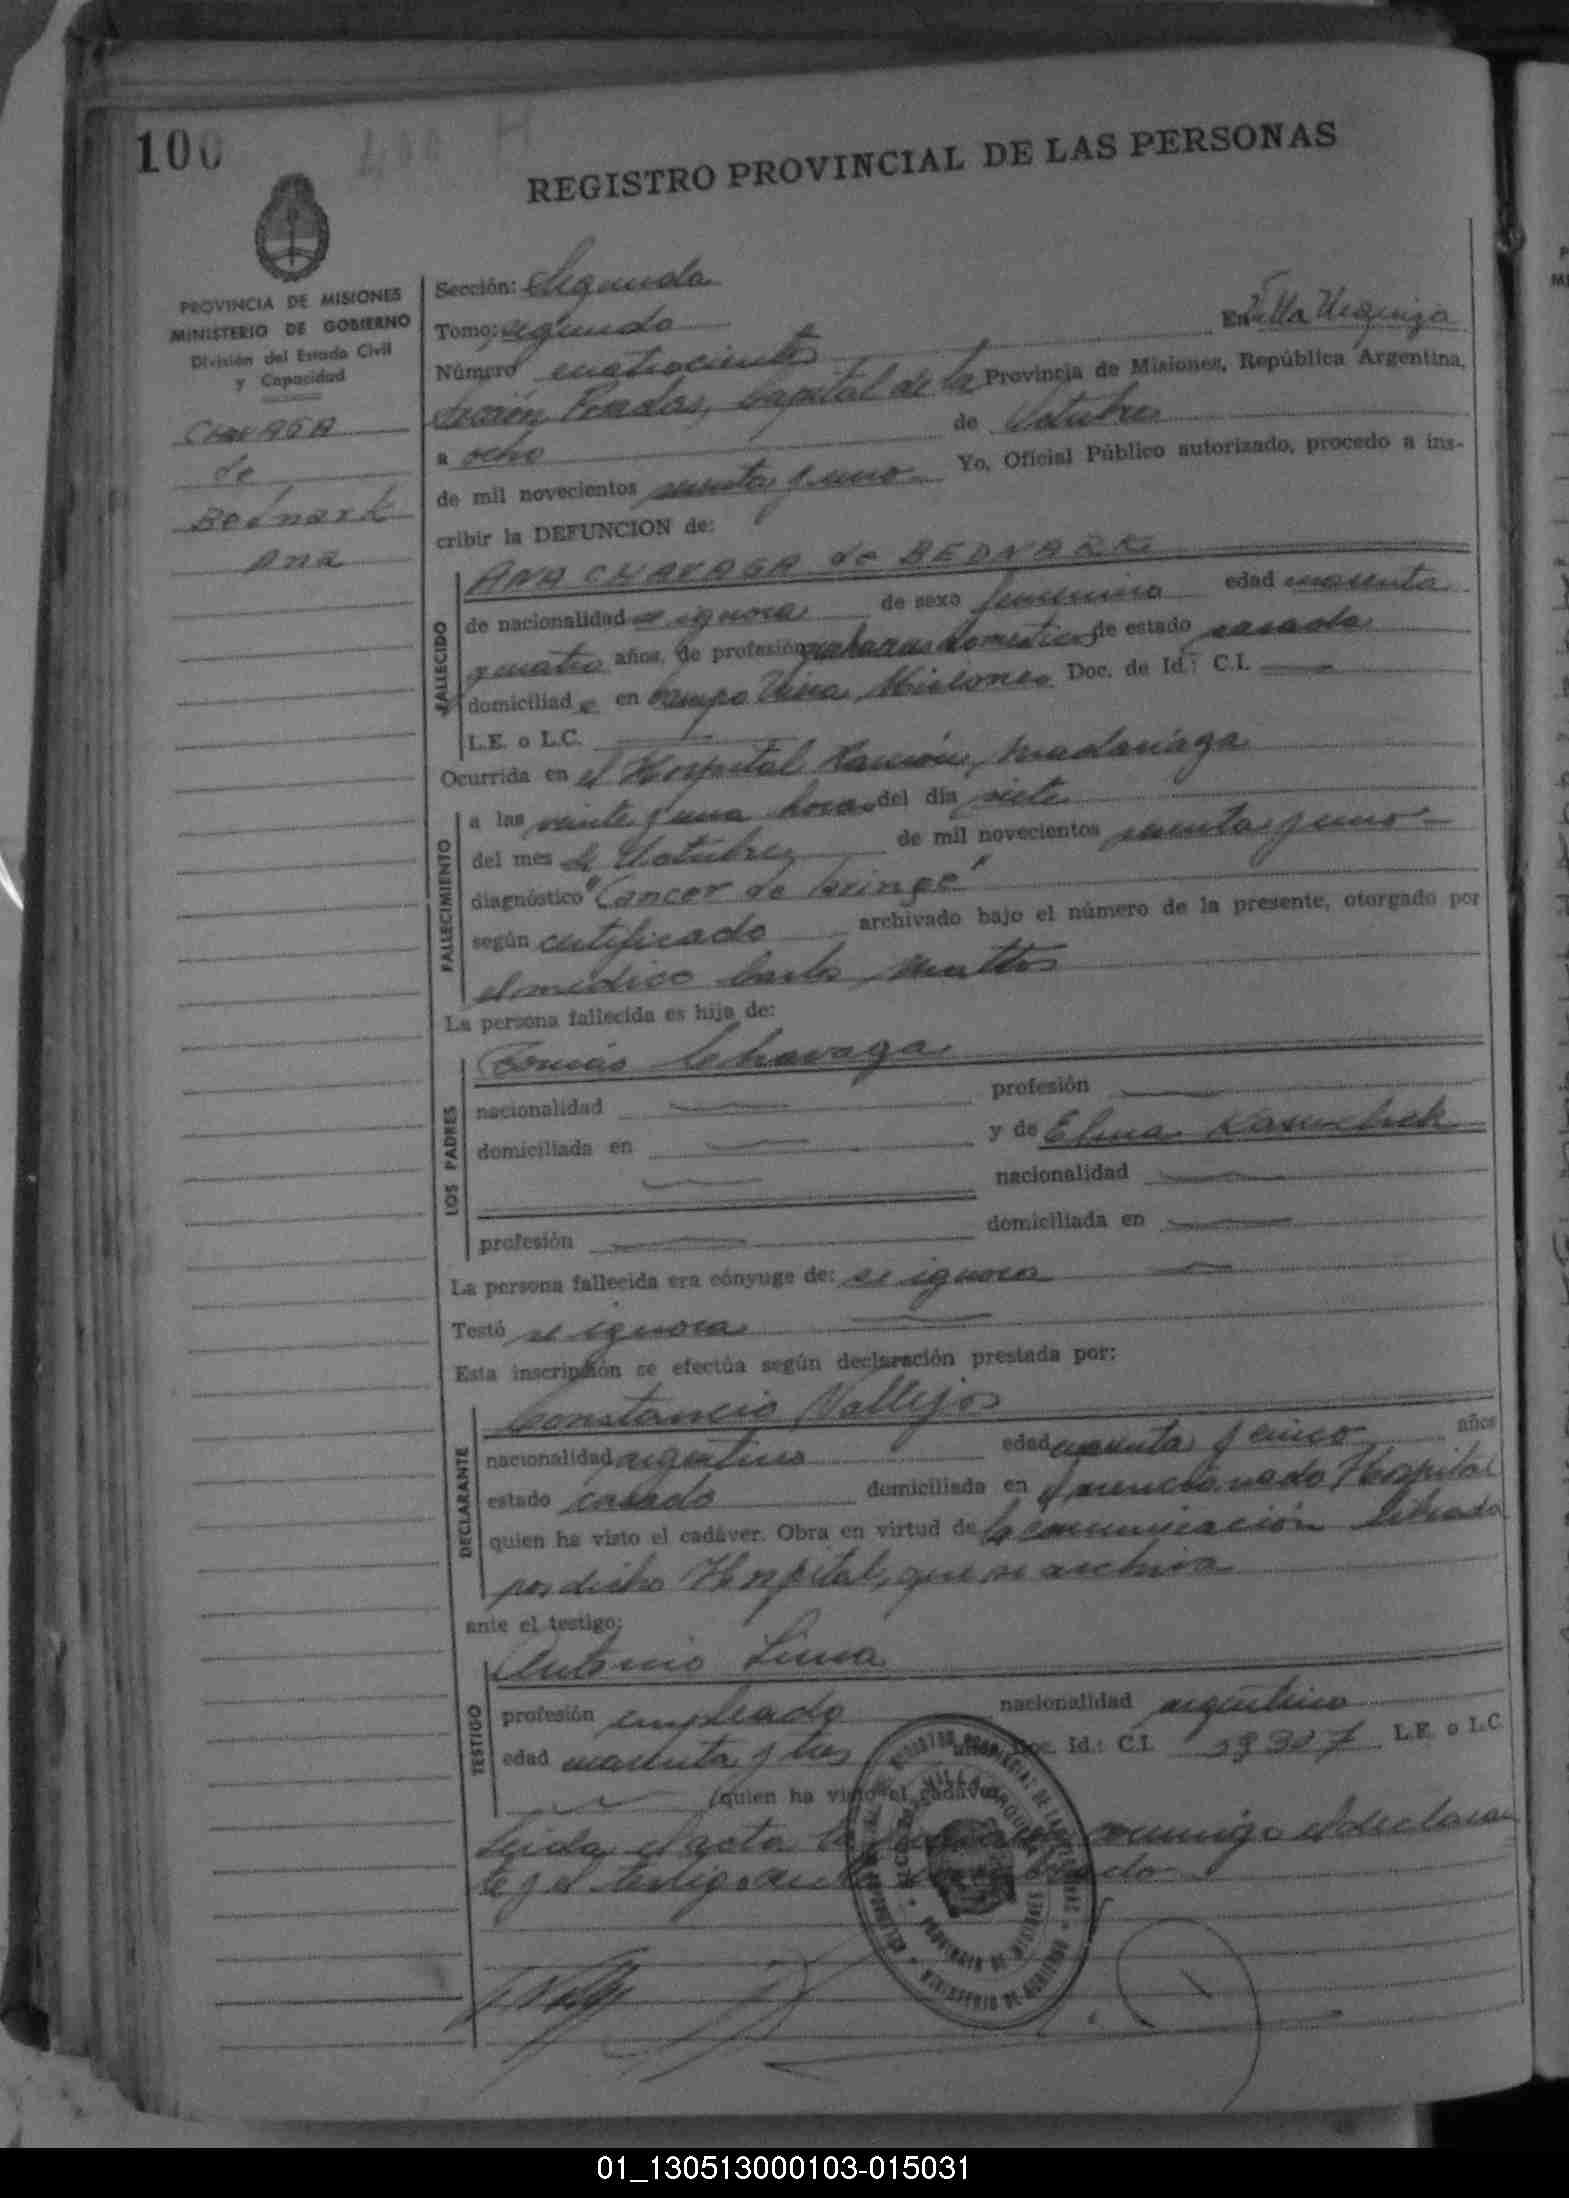 100
400 H
REGISTRO PROVINCIAL DE LAS PERSONAS
PROVINCIA DE MISIONES
MINISTERIO DE GOBIERNO
División del Estado Civil
y Capacidad
CHAVAGA
de
Bednark
Ana
Sección: Segunda
Tomo: segundo
Número cuatrocientos En Villa Urquiza
Sección Posadas, Capital de la Provincia de Misiones, República Argentina,
a ocho de Octubre
de mil novecientos sesenta y uno Yo, Oficial Público autorizado, procedo a ins-
cribir la DEFUNCION de:
FALLECIDO
ANA CHAVAGA de BEDNARK
de nacionalidad se ignora de sexo femenino edad cuarenta
y cuatro años, de profesión quehaceres domesticos de estado casada
domiciliad a en Campo Viera, Misiones Doc. de Id.: C.I.
L.E. o L.C.
Ocurrida en el Hospital Ramón Madariaga
FALLECIMIENTO
a las veinte y una horas del día siete
del mes de Octubre de mil novecientos sesenta y uno
diagnóstico "Cancer de laringe"
según certificado archivado bajo el número de la presente, otorgado por
el medico Carlos Mattos
La persona fallecida es hija de:
LOS PADRES
Tomás Chavaga
nacionalidad profesión
domiciliada en y de Elena
nacionalidad
profesión domiciliada en
La persona fallecida era cónyuge de: se ignora
Testó se ignora
Esta inscripción se efectúa según declaración prestada por:
DECLARANTE
Constancio Vallejos
nacionalidad argentino edad cuarenta y cinco años
estado casado domiciliada en el mencionado Hospital
quien ha visto el cadáver. Obra en virtud de la comunicación librada
por dicho Hospital, que se archiva
ante el testigo:
TESTIGO
Antonio Lima
profesión empleado nacionalidad argentino
edad cuarenta y tres Doc. Id.: C.I. L.E. o L.C.
(quien ha visto el cadáver
Leida el acta la conmigo el declaran
te y el testigo
REGISTRO PROVINCIAL DE LAS PERSONAS
PROVINCIA DE MISIONES
MINISTERIO DE GOBIERNO
01_130513000103-015031